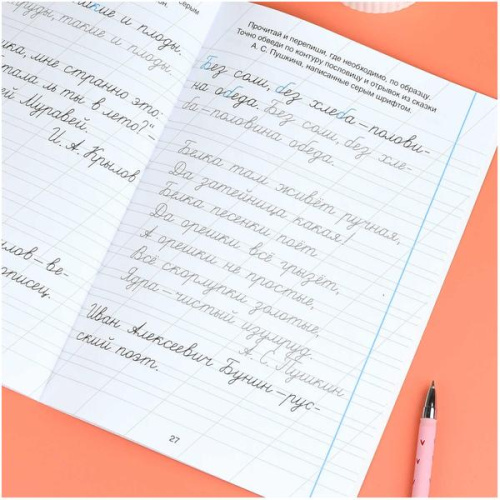 серым
кие и плоды.
труды, такие и плоды.
мне странно это:
ла ль ты в лето?"–
ей Муравей.
И. А. Крылов
лов – ве-
писец.
Прочитай и перепиши, где необходимо, по образцу.
Точно обведи по контуру пословицу и отрывок из сказки
А. С. Пушкина, написанные серым шрифтом.
Без соли, без хлеба – полови-
на обеда. Без соли, без хле-
ба – половина обеда.
Белка там живёт ручная,
Да затейница какая!
Белка песенки поёт
Да орешки всё грызёт,
А орешки не простые,
Всё скорлупки золотые,
Ядра – чистый изумруд.
А. С. Пушкин
Иван Алексеевич Бунин – рус-
ский поэт.
27